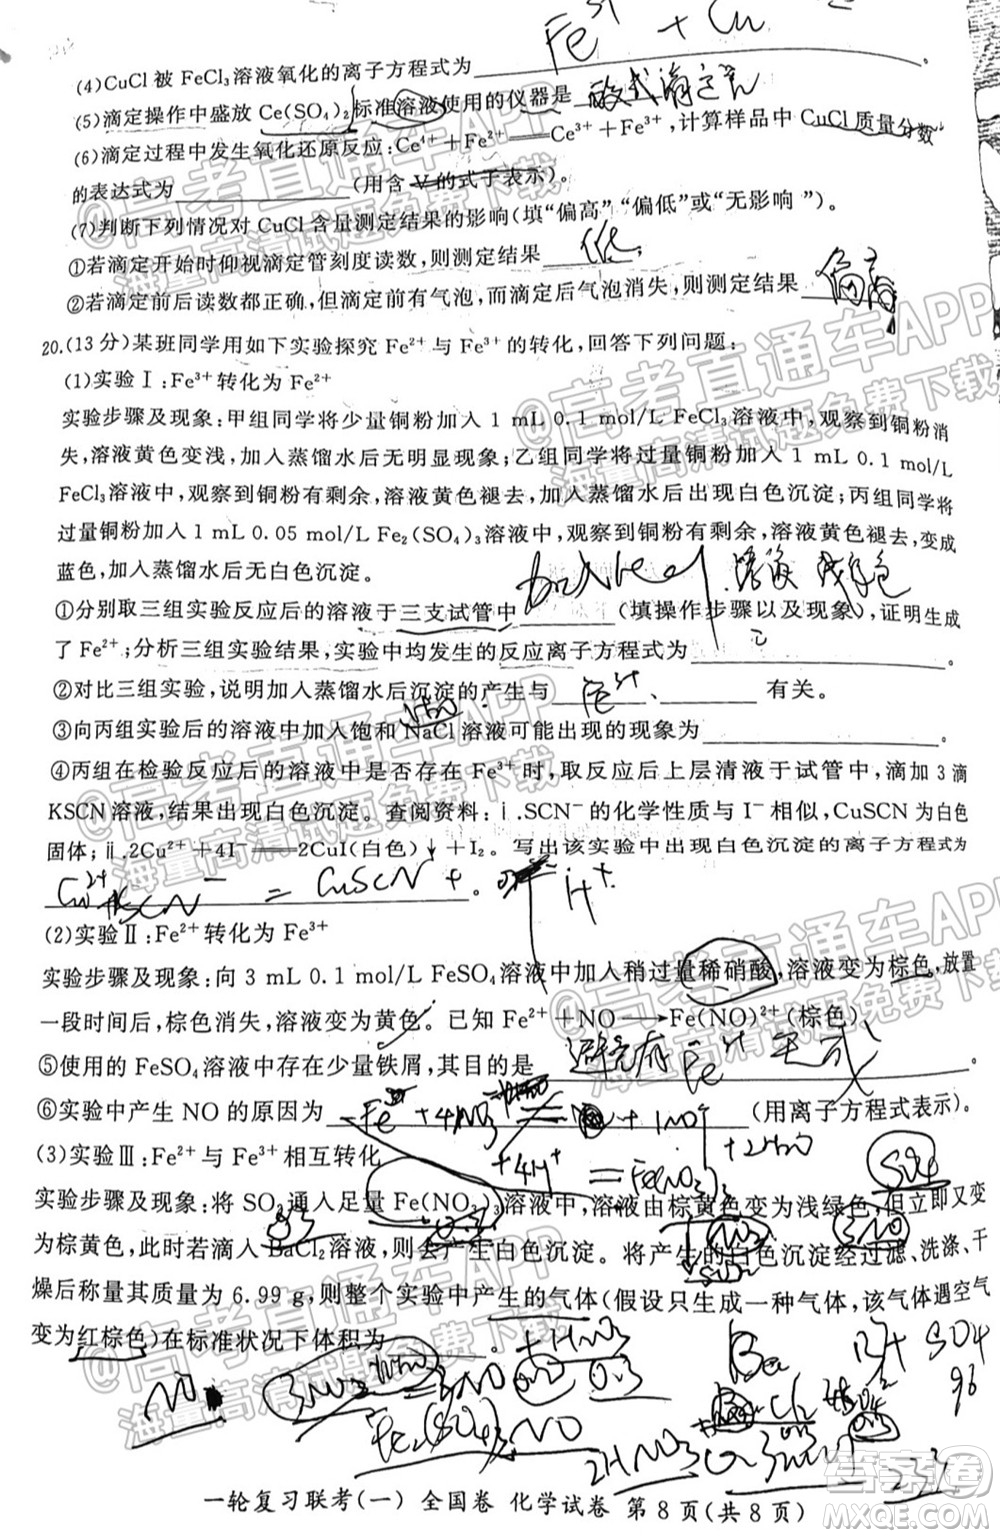 Fe³⁺ + Cu
(4)CuCl 被 FeCl₃溶液氧化的离子方程式为________。
(5)滴定操作中盛放 Ce(SO₄)₂标准溶液使用的仪器是 酸式滴定管
(6)滴定过程中发生氧化还原反应:Ce⁴⁺+Fe²⁺══Ce³⁺+Fe³⁺,计算样品中 CuCl 质量分数
的表达式为________(用含 V 的式子表示)。
(7)判断下列情况对 CuCl 含量测定结果的影响(填“偏高”“偏低”或“无影响 ”)。
①若滴定开始时仰视滴定管刻度读数,则测定结果 低
②若滴定前后读数都正确,但滴定前有气泡,而滴定后气泡消失,则测定结果 偏高
20.(13 分)某班同学用如下实验探究 Fe²⁺ 与 Fe³⁺ 的转化,回答下列问题:
(1)实验Ⅰ:Fe³⁺转化为 Fe²⁺
实验步骤及现象:甲组同学将少量铜粉加入 1 mL 0.1 mol/L FeCl₃溶液中,观察到铜粉消
失,溶液黄色变浅,加入蒸馏水后无明显现象;乙组同学将过量铜粉加入 1 mL 0.1 mol/L
FeCl₃溶液中,观察到铜粉有剩余,溶液黄色褪去,加入蒸馏水后出现白色沉淀;丙组同学将
过量铜粉加入 1 mL 0.05 mol/L Fe₂(SO₄)₃溶液中,观察到铜粉有剩余,溶液黄色褪去,变成
蓝色,加入蒸馏水后无白色沉淀。
①分别取三组实验反应后的溶液于三支试管中________(填操作步骤以及现象),证明生成
了 Fe²⁺;分析三组实验结果,实验中均发生的反应离子方程式为________。
②对比三组实验,说明加入蒸馏水后沉淀的产生与 Fe³⁺ 有关。
③向丙组实验后的溶液中加入饱和 NaCl 溶液可能出现的现象为________。
④丙组在检验反应后的溶液中是否存在 Fe³⁺时,取反应后上层清液于试管中,滴加 3 滴
KSCN 溶液,结果出现白色沉淀。查阅资料:ⅰ.SCN⁻的化学性质与 I⁻相似,CuSCN 为白色
固体;ⅱ.2Cu²⁺+4I⁻══2CuI(白色)↓+I₂。写出该实验中出现白色沉淀的离子方程式为
Cu²⁺ + SCN⁻ = CuSCN + 。
(2)实验Ⅱ:Fe²⁺转化为 Fe³⁺
实验步骤及现象:向 3 mL 0.1 mol/L FeSO₄溶液中加入稍过量稀硝酸,溶液变为棕色,放置
一段时间后,棕色消失,溶液变为黄色。已知 Fe²⁺+NO→Fe(NO)²⁺(棕色)
⑤使用的 FeSO₄溶液中存在少量铁屑,其目的是 避免有 Fe³⁺ 生成 。
⑥实验中产生 NO 的原因为________(用离子方程式表示)。
(3)实验Ⅲ:Fe²⁺与 Fe³⁺相互转化
实验步骤及现象:将 SO₂通入足量 Fe(NO₃)₃溶液中,溶液由棕黄色变为浅绿色,但立即又变
为棕黄色,此时若滴入 BaCl₂溶液,则会产生白色沉淀。将产生的白色沉淀经过滤、洗涤、干
燥后称量其质量为 6.99 g,则整个实验中产生的气体(假设只生成一种气体,该气体遇空气
变为红棕色)在标准状况下体积为
NO
SO4
96
2.33
一轮复习联考(一) 全国卷 化学试卷 第 8 页(共 8 页)
@高考直通车APP
海量高清试题免费下载
答案圈
MXQE.COM